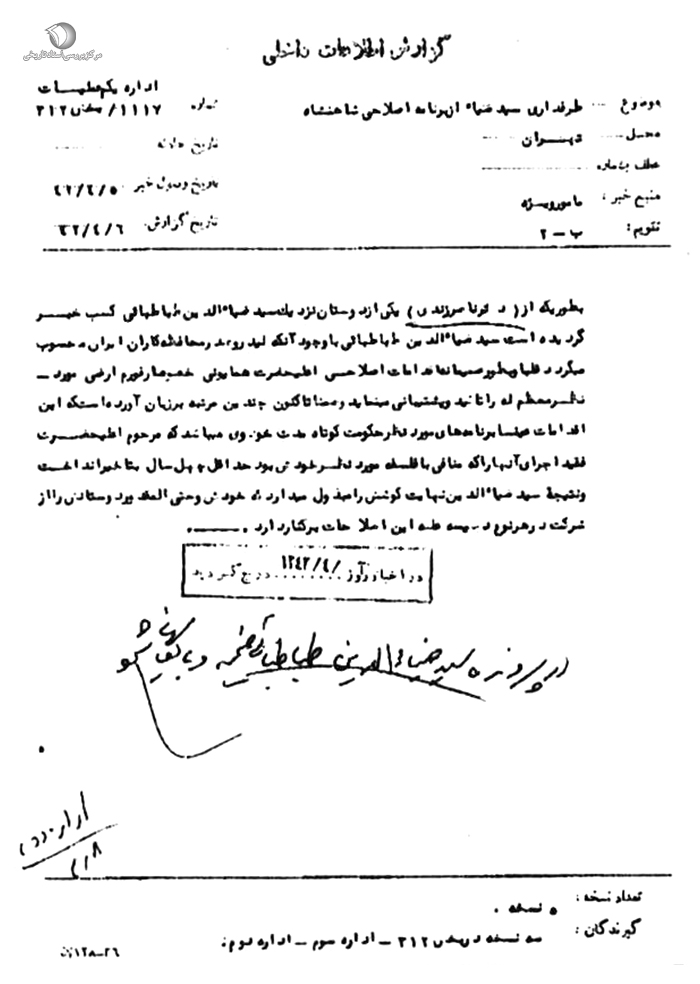 مرکز بررسی اسناد تاریخی
گزارش اطلاعات داخلی
اداره یکم عملیات
شماره ۱۱۱۷/ بخش ۳۱۲
موضوع طرفداری سید ضیاء از برنامه اصلاحی شاهنشاه
محل تهران
تاریخ حادثه
عطف بشماره
تاریخ وصول خبر ۴۲/۴/۵
منبع خبر: مامور ویژه
تاریخ گزارش: ۴۲/۴/۶
تقویم: ب-۲
بطوریکه از (دکتر ناصر زندی) یکی از دوستان نزدیک سید ضیاءالدین طباطبائی کسب خبر
گردیده است سید ضیاءالدین طباطبائی با وجود آنکه لیدر و رهبر محافظه کاران ایران محسوب
میگردد قلبا و بطور صمیمانه اقدامات اصلاحی اعلیحضرت همایونی خصوصا رفورم ارضی مورد-
نظر معظم له را تائید و پشتیبانی مینماید و ضمنا تاکنون چندین مرتبه بر زبان آورده است که این
اقدامات عینا برنامه های مورد نظر حکومت کوتاه مدت خود وی میباشد که مرحوم اعلیحضرت
فقید اجرای آنها را که منافی با فلسفه مورد نظر خودش بود حداقل چهل سال بتاخیر انداخت
و نتیجة سید ضیاءالدین نهایت کوشش را مبذول میدارد که خودش و حتی المقدور دوستانش را از
شرکت در هر نوع دسیسه علیه این اصلاحات برکنار دارد.
در اخبار روز ۱۳۴۲/۴/ درج گردید
در پرونده سید ضیاءالدین طباطبائی ضمیمه و بایگانی شود
اداره دوم
۴/۸
تعداد نسخه: ۵ نسخه.
گیرندگان: سه نسخه در بخش ۳۱۲ – اداره سوم – اداره دوم.
۱۲۸-۲۶